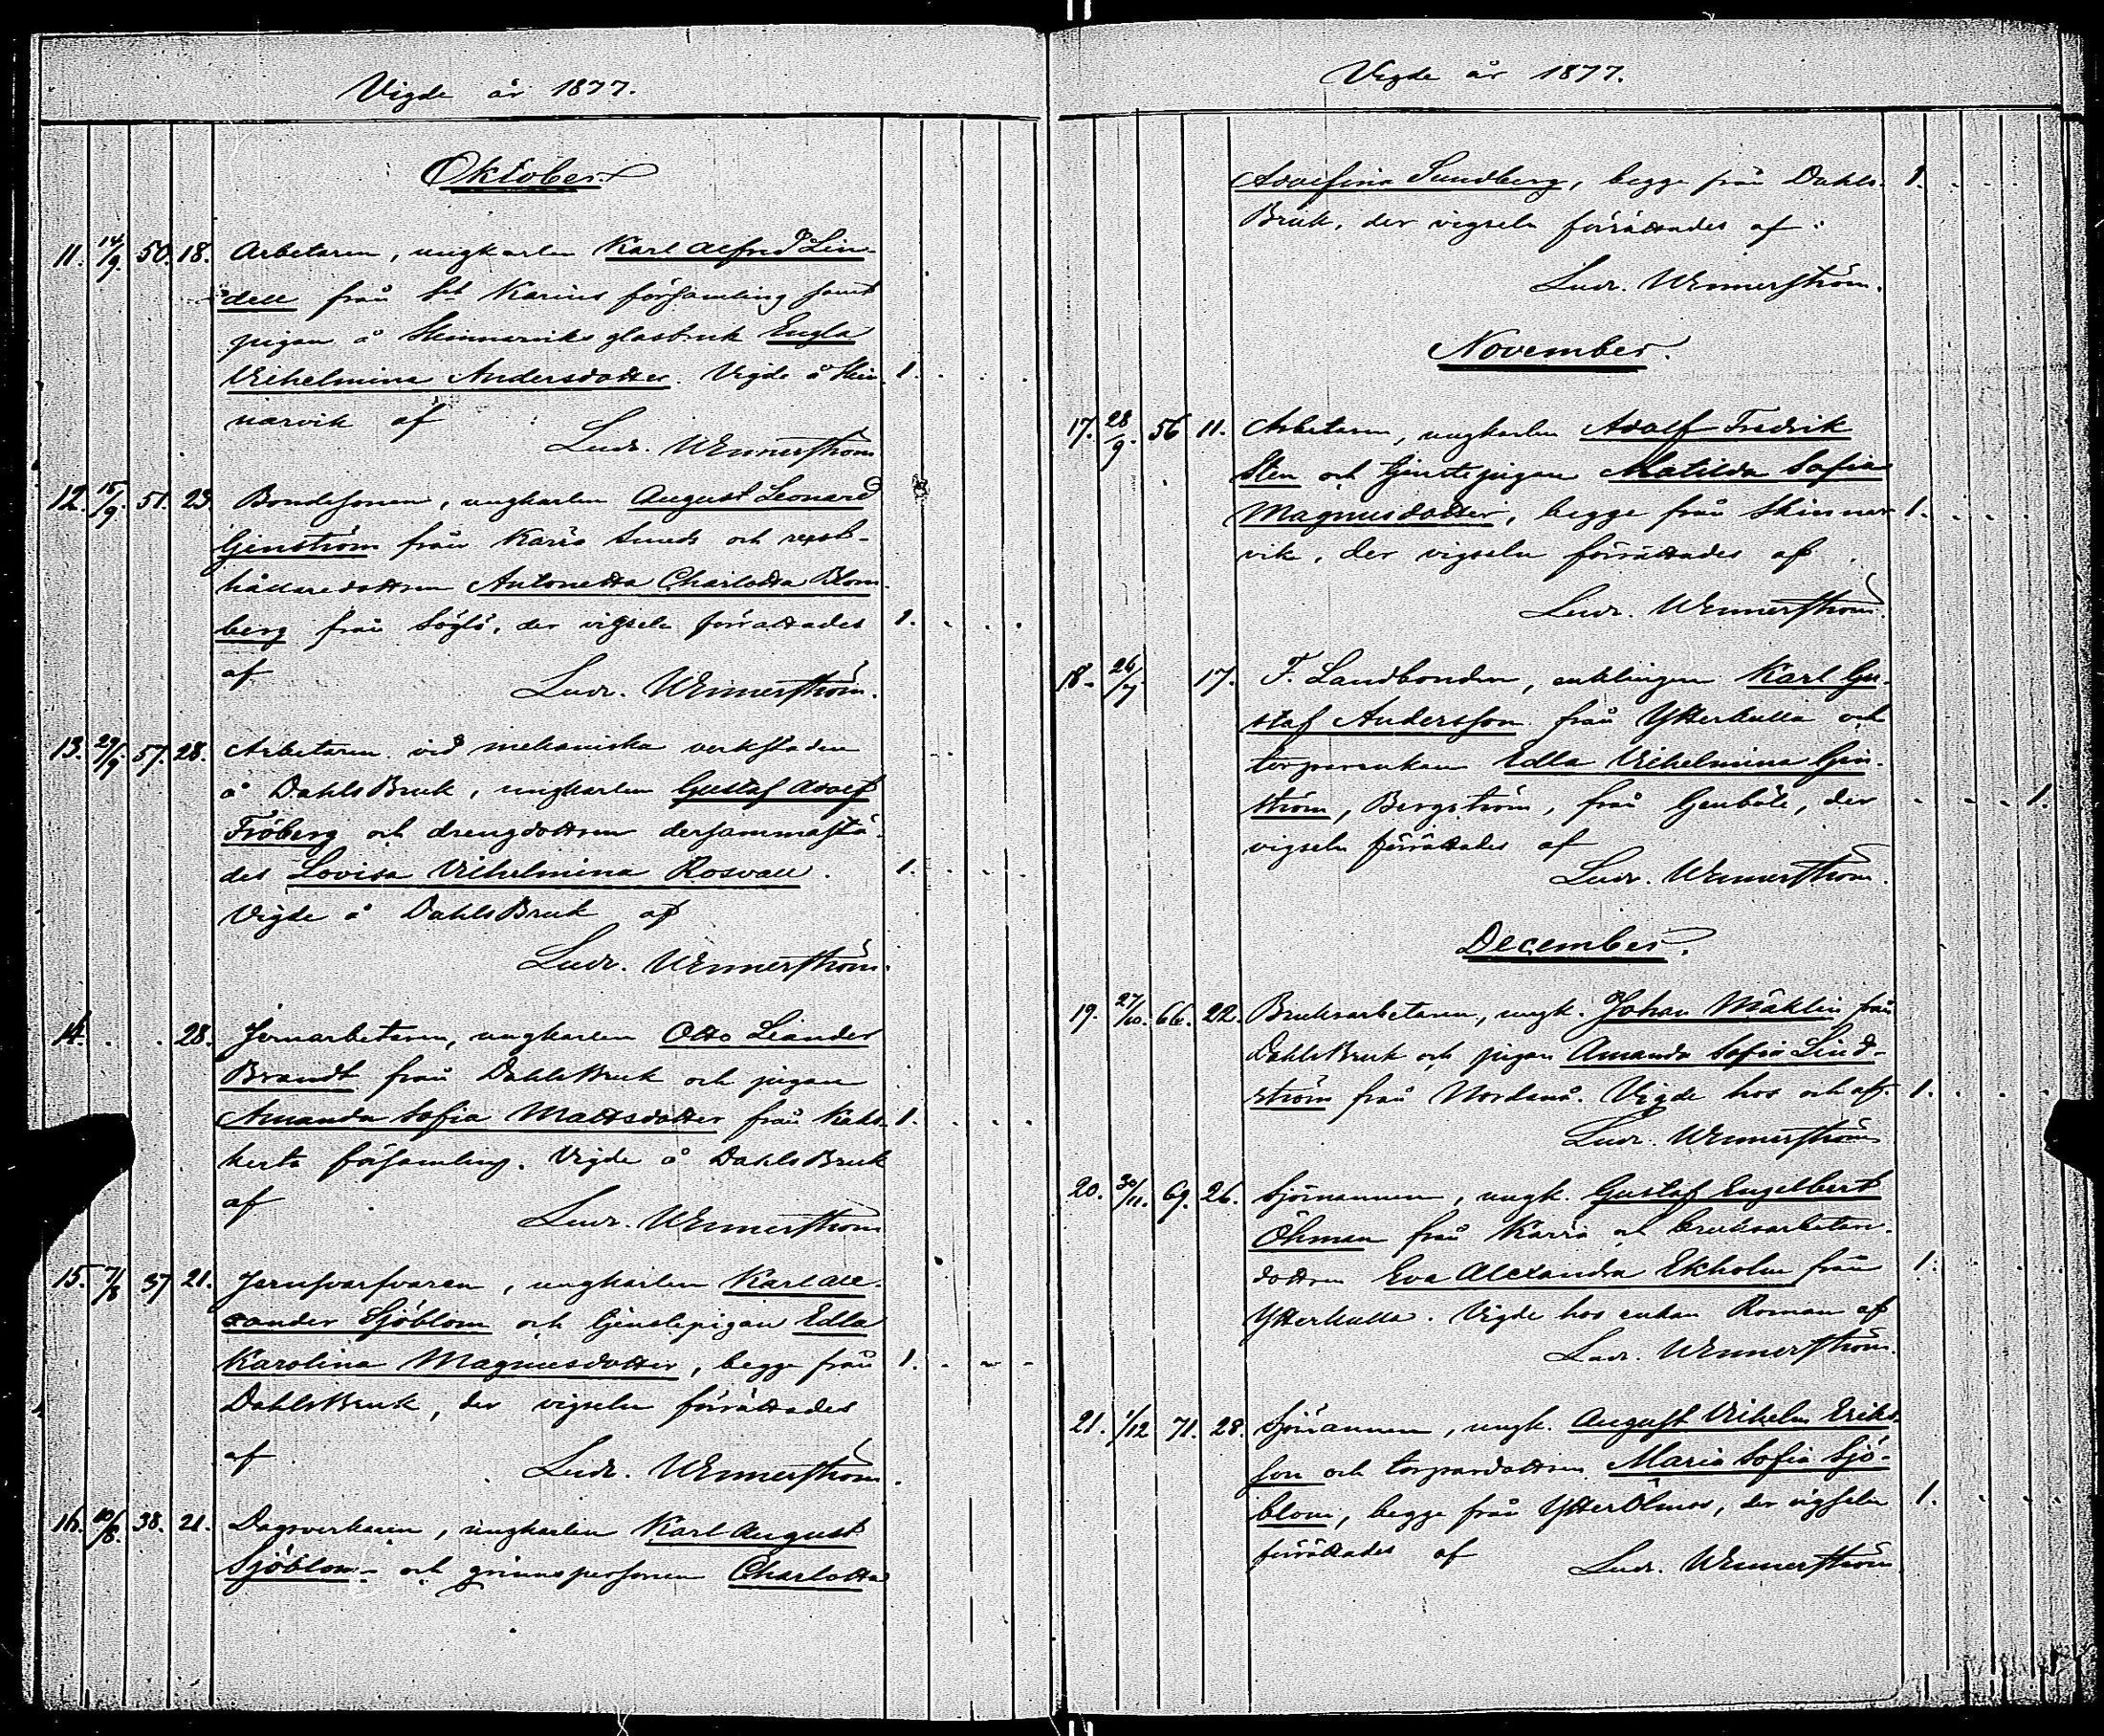 Vigde år 1877.
Oktober
11. 14/9. 50. 18. Arbetaren, ungkarlen Karl Alfred Lin-
dell från S:t Karins församling samt
pigan å Skinnarviks glasbruk Engla
Vilhelmina Andersdotter. Vigde å Skin- 1.
narvik af
Ludv. Wennerström
12. 15/9. 51. 23. Bondesonen, ungkarlen August Leonard
Genström från Karia Sunds och rust-
hållaredottren Antonetta Charlotta Blom-
berg från Söglö, der vigseln förrättades 1.
af
Ludv. Wennerström.
13. 29/9. 57. 28. Arbetaren vid mekaniska verkstaden
å DahlsBruk, ungkarlen Gustaf Adolf
Fröberg och drengdottren dersammastä-
des Lovisa Vilhelmina Rosvall. 1.
Vigde å DahlsBruk af
Ludv. Wennerström.
14. . . 28. Jernarbetaren, ungkarlen Otto Leander
Brandt från DahlsBruk och pigan
Amanda Sofia Mattsdotter från Kak- 1.
kerta församling. Vigde å DahlsBruk
af
Ludv. Wennerström
15. 7/8 37 21. Jernsvarfvaren, ungkarlen Karl Ale-
xander Sjöblom och tjenstepigan Edla
Karolina Magnusdotter, begge från 1.
DahlsBruk, der vigseln förrättades
af
Ludv. Wennerström.
16. 10/8. 38. 21. Dagsverkaren, ungkarlen Karl August
Sjöblom och qvinnspersonen Charlotta
Vigde år 1877.
Adolfina Sundberg, begge från Dahls- 1.
Bruk, der vigseln förrättades af:
Ludv. Wennerström.
November.
17. 28/9 56 11. Arbetaren, ungkarlen Adolf Fredrik
Sten och tjenstepigan Matilda Sofia
Magnusdotter, begge från Skinnar- 1.
vik, der vigseln förrättades af
Ludv. Wennerström.
18. 26/7 17. F. Landbonden, enklingen Karl Gu-
staf Andersson från Ytterkulla och
torpareenkan Edla Vilhelmina Gen-
ström, Bergström, från Genböle, der 1.
vigseln förrättades af
Ludv. Wennerström.
December.
19. 27/10. 66. 22. Bruksarbetaren, ungk. Johan Mäklin från
DahlsBruk och pigan Amanda Sofia Lind-
ström från Nordanå. Vigde hos och af 1.
Ludv. Wennerström
20. 30/11. 69. 26. Sjömannen, ungk. Gustaf Engelbert
Öhman från Karia och bruksarbetare-
dottren Eva Alexandra Ekholm från 1.
Ytterkulla. Vigde hos enkan Roman af
Ludv. Wennerström.
21. 1/12 71. 28. Sjömannen, ungk. August Vilhelm Eriks-
son och torparedottren Maria Sofia Sjö-
blom, begge från YtterÖlmos, der vigseln 1.
förrättades af Ludv. Wennerström